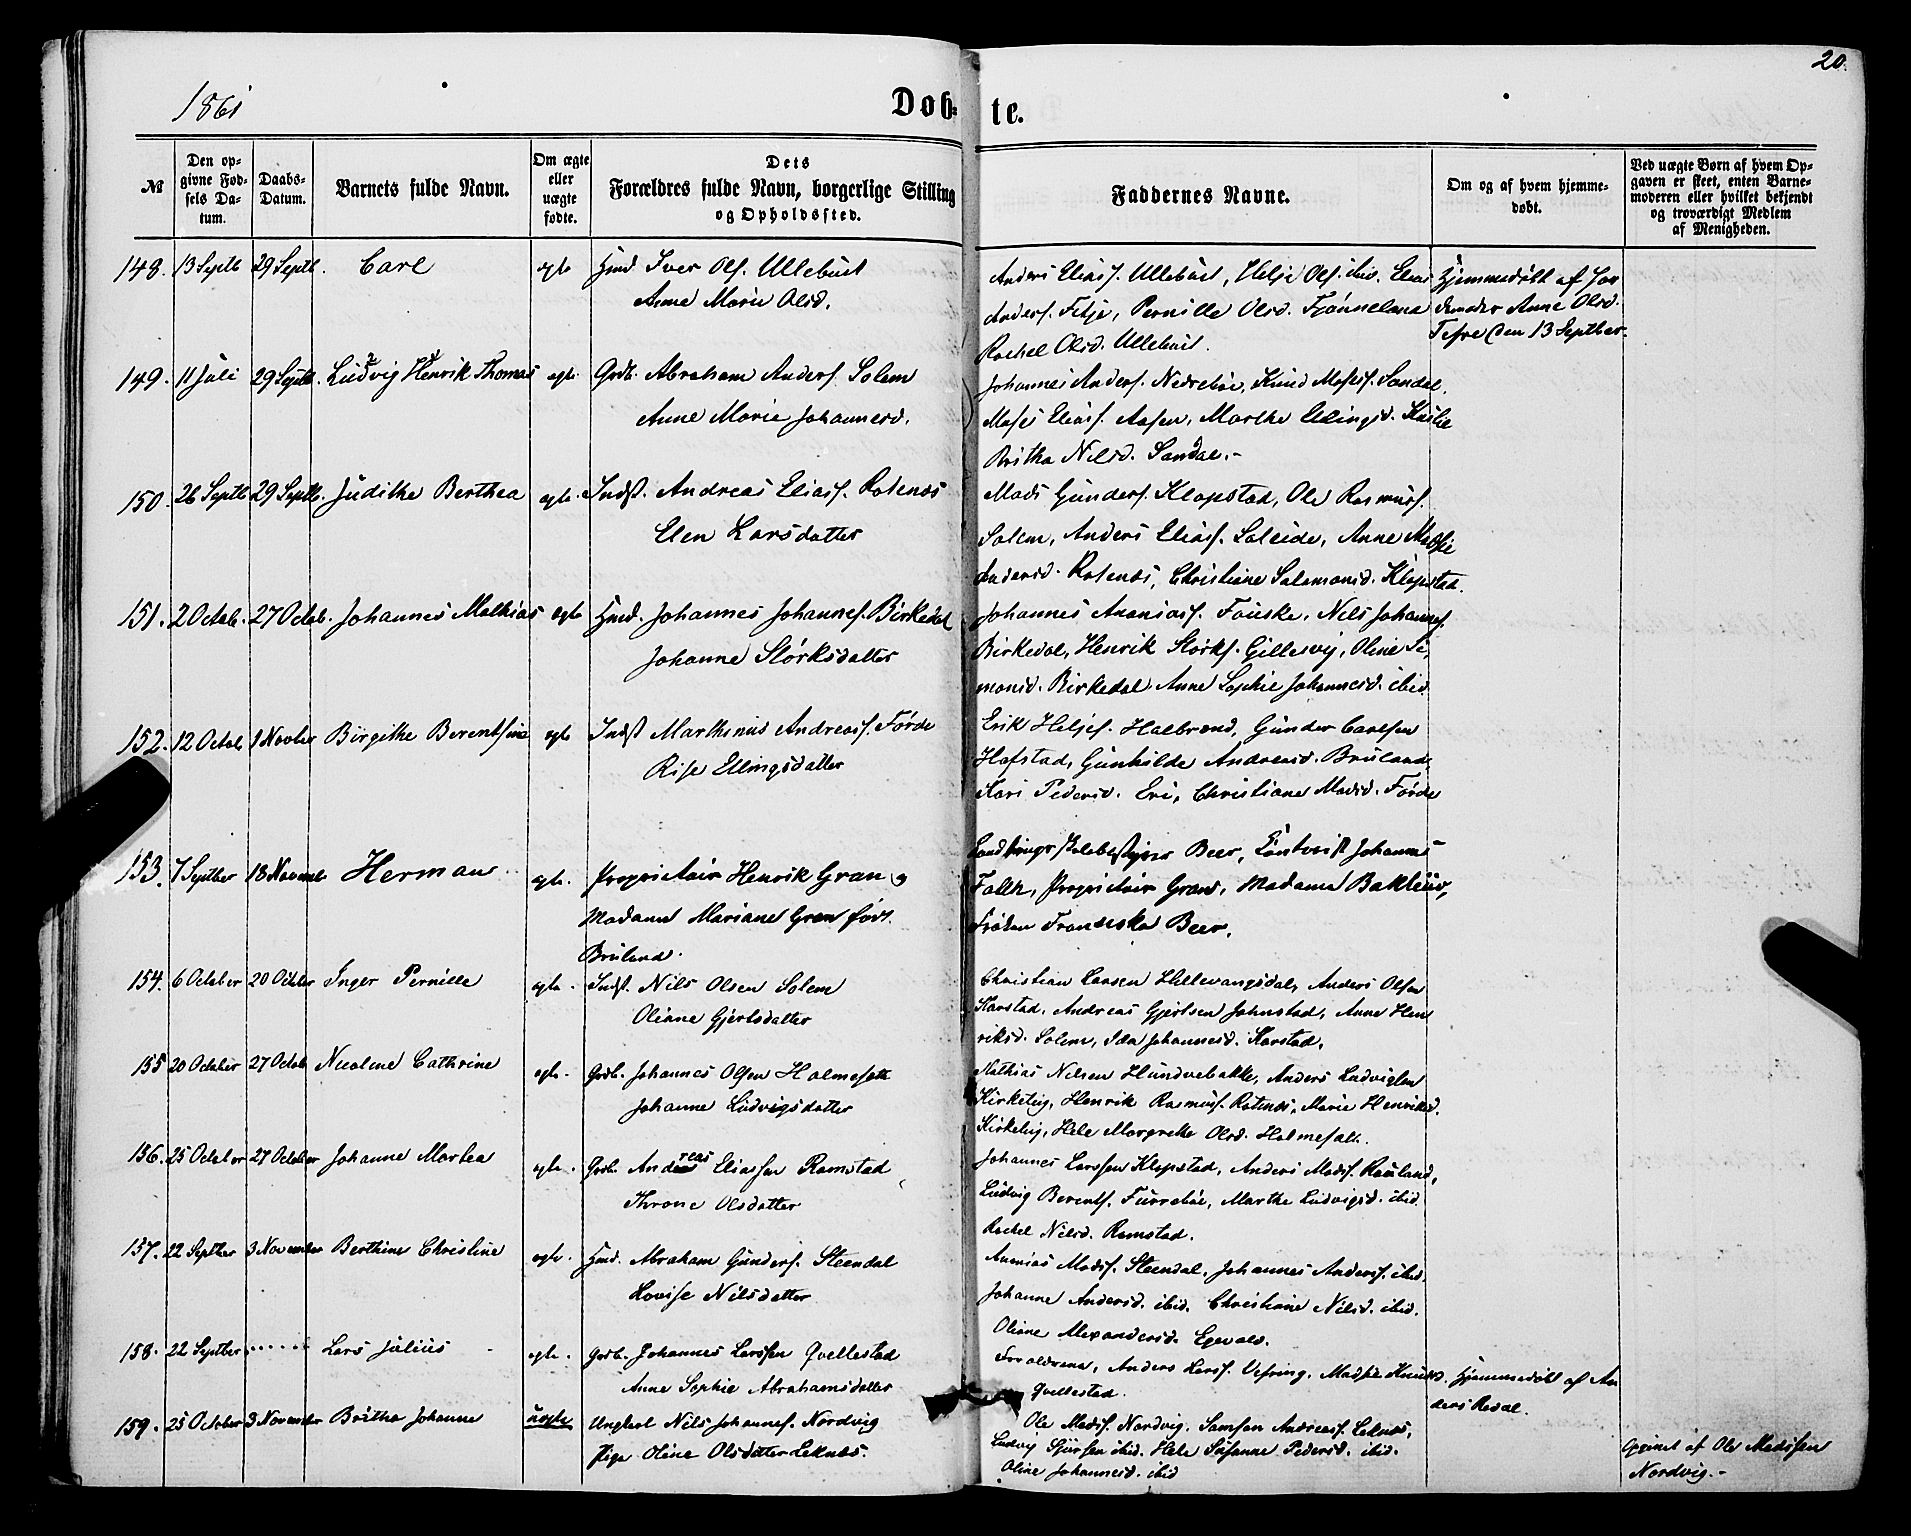 1861
Døb-
te.
20.
№
Den op-
givne Fød-
sels Da-
tum.
Daabs-
Datum.
Barnets fulde Navn.
Om ægte
eller
uægte
fødte.
Dets
Forældres fulde Navn, borgerlige Stilling
og Opholdssted.
Faddernes Navne.
Om og af hvem hjemme-
døbt.
Ved uægte Børn af hvem Op-
gaven er skeet, enten Barne-
moderen eller hvilket bekjendt
og troværdigt Medlem
af Menigheden.
148. 13 Septb 29 Septb. Carl egte Hmd. Iver Ols. Ullebust
Anne Marie Olsd.
Anders Eliass. Ullebust, Helje Ols. ibid. Elias
Anders. Fitje, Pernille Olsd. Fjønneland
Rachel Olsd. Ullebust.
Hjemmedøbt af Jor
demoder Anne Olsd.
Tefre den 13 Septber.
149. 11 Juli 29 Septb. Ludvig Henrik Thomas egte. Grdb. Abraham Anders. Solem
Anne Marie Johannesd.
Johannes Anders. Nedrebøe, Knud Moses. Sandal,
Moses Eliass. Aasen, Marthe Ellingsd.
Britha Nilsd. Sandal.-
150. 26 Septb 29 Septb. Judithe Berthea egte. Indst. Andreas Eliass. Rotenæs
Elen Larsdatter
Mads Gunders. Klopstad, Ole Rasmuss.
Solem, Anders Eliass. Soleide, Anne Marie
Andersd. Rotenæs, Christiane Salamonsd. Klopstad.
151. 2 Octob. 27 Octob. Johannes Mathias egte Hmd. Johannes Johannes. Birkedal
Johanne Størksdatter
Johannes Ananiass. Fauske, Nils Johannes.
Birkedal, Henrik Størks. Gillesvig, Oline Si
monsd. Birkedal Anne Sophie Johannesd. ibid
152. 12 Octob 1 Novber Birgithe Berentsine egte Indst Marthinus Andreass. Førde
Rise Ellingsdatter
Erik Heljes. Halbrend, Gunder Carlsen
Hafstad, Gunhilde Andreasd. Bruland,
Kari Pedersd. Eri, Christiane Madsd. Førde
153. 7 Septber 18 Novemb Herman egte. Proprietair Henrik Gran og
Madame Mariane Gran født
Bruland.
Beer, Johannes
Falch, Proprietair Grand, Madame
Frøken Franciska Beer.
154. 6 October 20 October Inger Pernille egte. Indst. Nils Olsen Solem
Oliane Gjertsdatter
Christian Larsen Hellevangsdal, Anders Olsen
Karstad, Andreas Gjertsen Johnstad, Anne Hen
riksd. Solem, Ida Johannesd. Karstad.
155 20 October 27 Octob Nicoline Cathrine egte. Grdb. Johannes Olsen Holmeset
Johanne Ludvigsdatter
Mathias Nilsen Hundvebakke, Anders Ludvigsen
Kirketeig, Henrik Rasmus. Rotenæs, Marie Henriksd.
Kirketeig, Hele Margrethe Olsd. Holmeset.
156. 25 October 27 October Johanne Martea egte. Grdb. Andreas Eliassen Ramstad
Throne Olsdatter
Johannes Larssen Klopstad, Anders Mads. Rauland,
Ludvig Berents. Furrebøe, Marthe Ludvigsd. ibid.
Rachel Nilsd. Ramstad.
157. 22 Septber 3 November Berthine Christine egte. Hmd. Abraham Gunders. Steendal
Lovise Nilsdatter
Ananias Mads. Steendal, Johannes Anders. ibid.
Johanne Andersd. ibid. Christiane Nilsd. ibid.
Oliane Alexandersd. Egevald.
158. 22 Septber ...... Lars Julius egte. Grdb. Johannes Larssen Qvellestad
Anne Sophie Abrahamsdatter
Forældrene, Anders Larss. Vefring, Madsie Knudsd.
Qvellestad.
Hjemmedøbt af An
ders Redal.
159. 25 October 3 November Britha Johanne uegte Ungkarl Nils Johannes. Nordvig
Pige Oline Olsdatter Leknæs.
Ole Mads. Nordvig, Samson Andreass. Leknæs,
Ludvig Sjursen ibid. Hele Susanne Pedersd. ibid.
Oline Johannesd. ibid
Opgivet af Ole Madssen
Nordvig.-